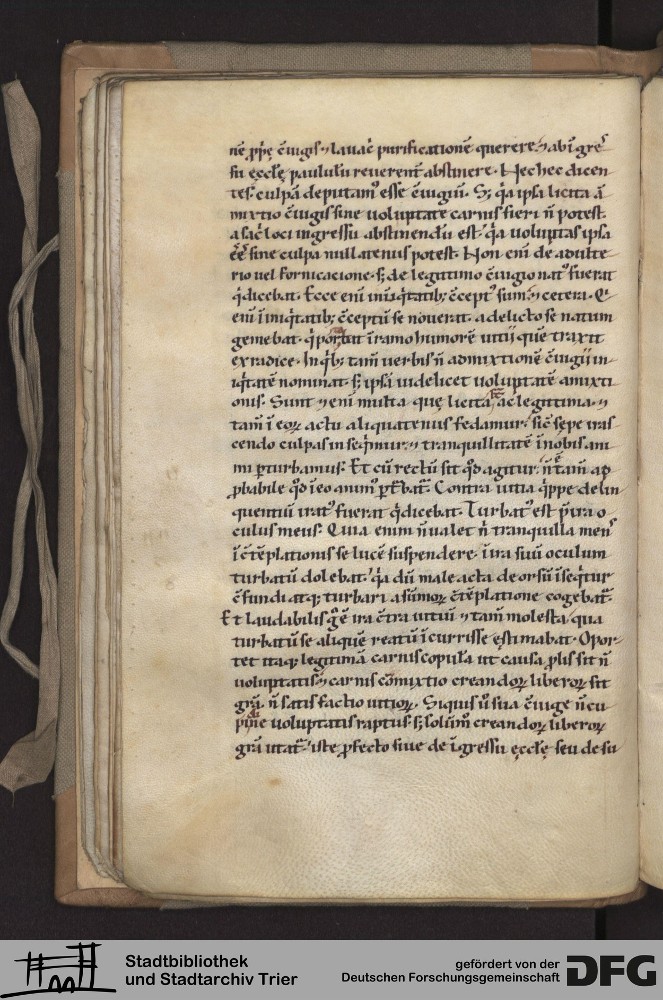 nē ꝓprię ꝯiugis ⁊ lauac̄ purificationē querere. ⁊ ab īgres
su ęcclę paululū reuerent̄ abstinere. Nec hec dicen
tes. culpā deputam᷒ esse ꝯiugiū. Sꝫ q̇a ipsa licita ā
mixtio ꝯiugis sine uoluptate carnis fieri n̄ potest.
a sac̄ loci ingressu abstinendū est. q̇a uoluptas ipsa
ēē sine culpa nullatenus potest. Non eni de adulte
rio uel fornicacione. sꝫ de legitimo ꝯiugio nat᷒ fuerat
q̇ dicebat. Ecce eni in iniq̇tatibꝫ ꝯcept᷒ sum. ⁊ cetera. Q̇
eni ī iniq̇tatibꝫ ꝯceptū se nouerat. a delicto se natum
gemebat. q̇ portat ī ramo humorē uitij quē traxit
ex radice. In q̇bꝫ tam̄ uerbis n̄ admixtionē ꝯiugij in
iq̇tatē nominat. sꝫ ipsā uidelicet uoluptatē amixti
onis. Sunt ⁊ eni multa. quę licita ac legittima. ⁊
tam̄ ī eoꝝ actu aliquatenus fedamur. sic̄ sępe iras
cendo culpas inseq̇mur. ⁊ tranquillitatē ī nobis ani
mi ꝑturbamus. Et cū rectū sit qd̄ agitur. n̄ ē tam̄ ap
ꝓbabile qd̄ ī eo anim᷒ ꝑt̄bat̄. Contra uitia q̇ppe delin
quentiū irat᷒ fuerat q̇ dicebat. Turbat᷒ est p̄ ira o
culus meus. Quia enim n̄ ualet n̄ tranquilla mens
ī ꝯtēplationis se lucē suspendere. ī ira suū oculum
turbatū dolebat. q̇a dū male acta deorsū īseq̇tur
ꝯfundi atqꝫ turbari a sūmoꝝ ꝯtēplatione cogebat̄.
Et laudabilis g̊ ē ira ꝯtra uitiū ⁊ tam̄ molesta. qua
turbatū se aliquē reatū īcurrisse ęstimabat. Opor
tet itaqꝫ legitimā carnis copulā ut causa ꝓlis sit n̄
uoluptatis. ⁊ carnis cōmixtio creandoꝝ liberoꝝ sit
grā. n̄ satisfactio uitioꝝ. Siquis ū sua ꝯiuge n̄ cu
pidine uoluptatis raptus. sꝫ solūm creandoꝝ liberoꝝ
grā utat̄. iste ꝓfecto siue de īgressu ęcclę. seu de su
Stadtbibliothek
und Stadtarchiv Trier
gefördert von der
Deutschen Forschungsgemeinschaft
DFG